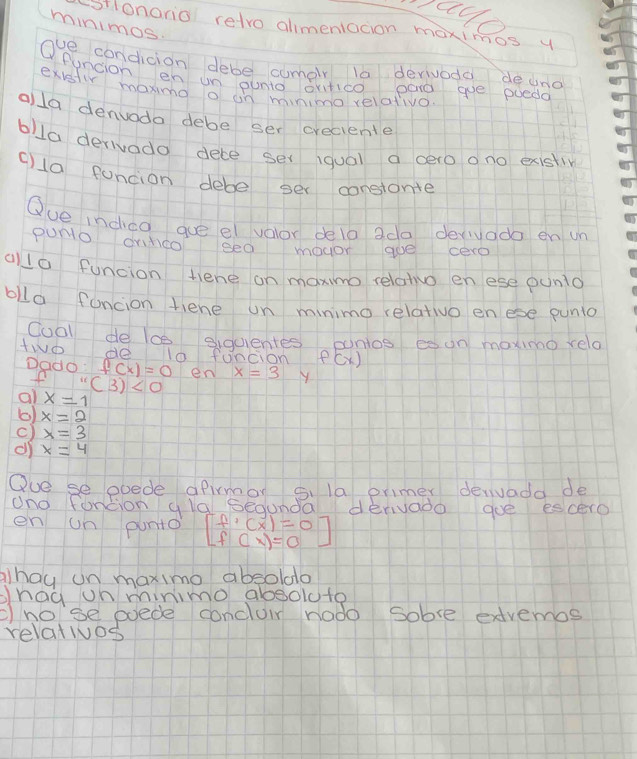 retro alimentacion maximos y
minimos.
Que condicion debe cumplir la derivada de una
funcion en un punto critico para que pueda
existir maximo o un minimo relativo.
a) la derivada debe ser creciente
b) la derivada debe ser igual a cero o no existir
c) la funcion debe ser constante
Que indica que el valor de la 2da derivada en un
punto critico sea mayor que cero
a) La funcion tiene un maximo relativo en ese punto
b) la funcion tiene un minimo relativo en ese punto
Cual de los siguientes puntos es un maximo rela
tivo de la funcion f(x)
Dado f(x)=0 en x=3 y
f "(3)<0
a) x=1
b) x=2
c) x=3
d) x=4
Que se puede afirmar si la primer derivada de
una funcion y la segunda derivada que es cero
en un punto [f'(x)=0
f(x)=0]
a) hay un maximo absoluto
b) hay un minimo absoluto
c) no se puede concluir nada sobre extremos
relativos